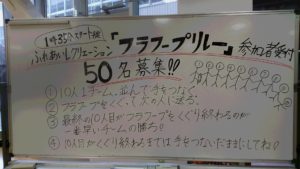 1時35分スタート
ふれあいレクリエーション「フラフープリレー」参加者受付
50名募集!!
① 10人1チーム、並んで手をつなぐ
② フラフープをくぐって次の人に送る
③ 最終の10人目がフラフープをくぐり終わるのが
一番早いチームの勝ち!!
④ 10人目がくぐり終わるまでは手をつないだままにしてね!